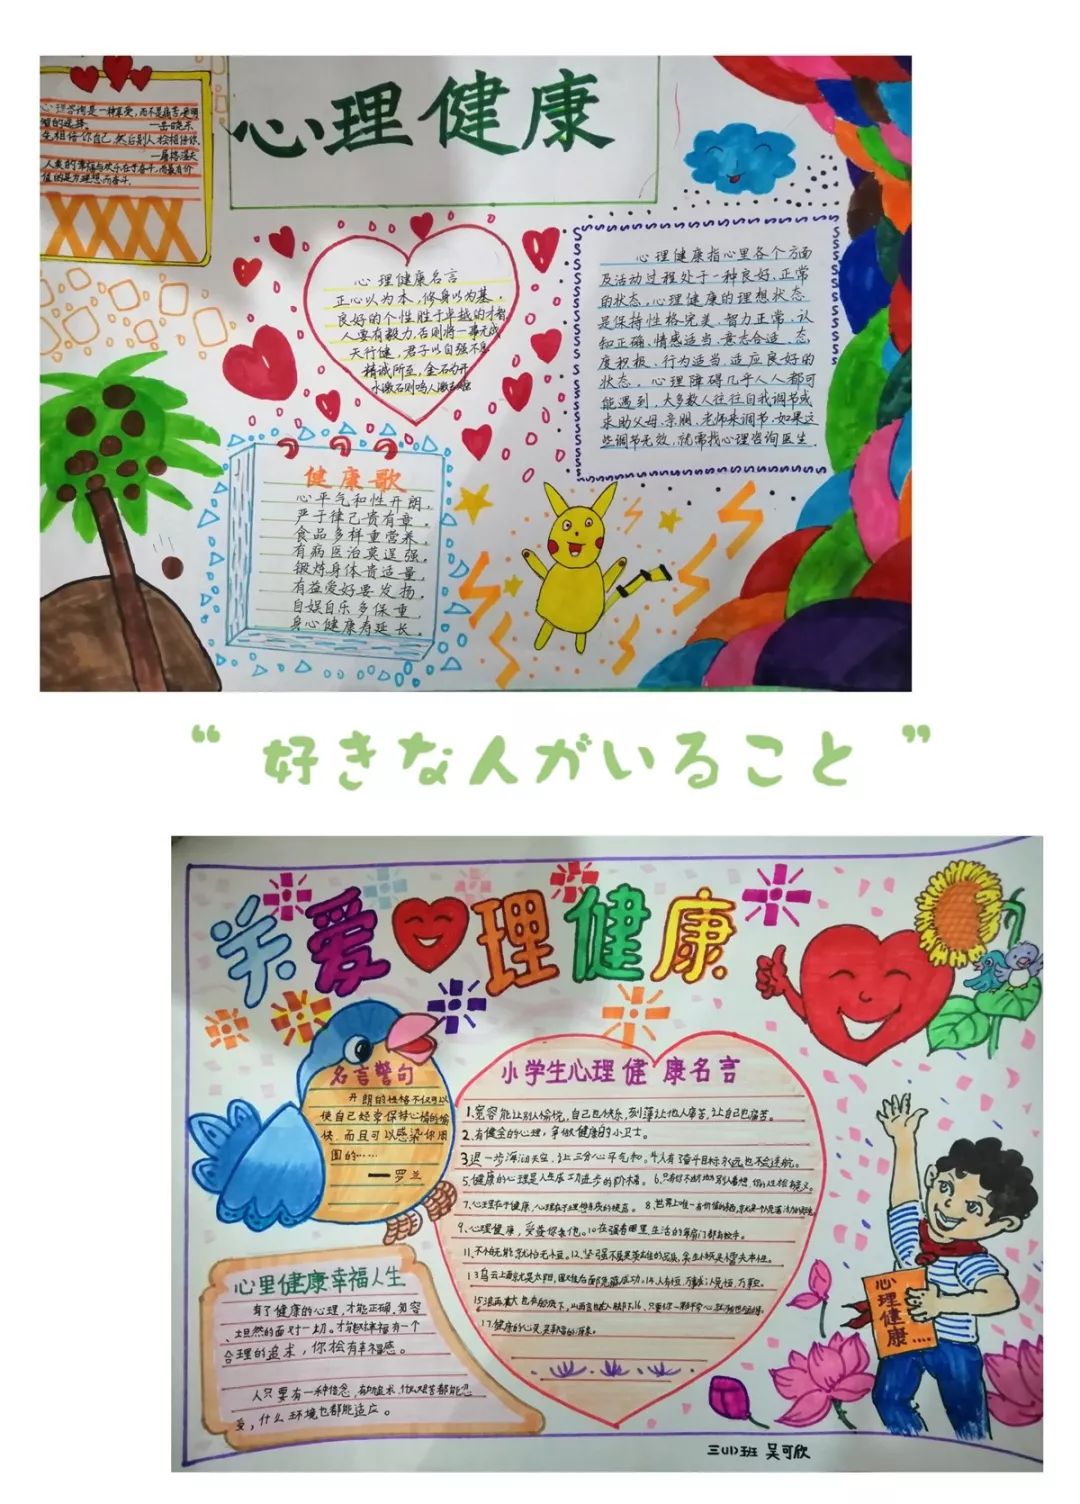 心理健康
心理咨询是一种享受,而不是痛苦,爱明
智的选择。 —岳晓东
先相信你自己,然后别人会相信你。
—屠格涅夫
人类的幸福与欢乐在于奋斗,而最有价
值的是为理想而奋斗。
心理健康名言
正心以为本,修身以为基。
良好的个性胜于卓越的才智
人要有毅力,否则将一事无成
天行健,君子以自强不息
精诚所至,金石为开
水激石则鸣人激
心理健康指心里各个方面
及活动过程处于一种良好、正常
的状态。心理健康的理想状态
是保持性格完美、智力正常、认
知正确、情感适当、意志合适、态
度积极、行为适当、适应良好的
状态。心理障碍几乎人人都可
能遇到,大多数人往往自我调节或
求助父母、亲朋、老师来调节,如果这
些调节无效,就需找心理咨询医生。
健康歌
心平气和性开朗,
严于律己贵有章。
食品多样重营养,
有病医治莫逞强。
锻炼身体贵适量,
有益爱好要发扬,
自娱自乐多保重,
身心健康寿延长。
“好きな人がいること”
关爱 理健康
名言警句
开朗的性格不仅可以
使自己经常保持心情的愉
快,而且可以感染你周
围的……
——罗兰
小学生心理健康名言
1.宽容能让别人愉悦,自己也快乐,刻薄让他人痛苦,让自己也痛苦。
2.有健全的心理,争做健康的小卫士。
3退一步海阔天空,让三分心平气和。4人有了奋斗目标永远也不会迷航。
5.健康的心理是人生成功进步的阶梯。6.
7.心理美在于健康,心理在于
8.世界上唯一有价值的
9.心理健康,受益你我他。10在强者眼里,生活的
11.不怕无能就怕无 12.坚强不屈是英雄的品质,
13乌云上面就是太阳,困难后面 成功。14.人有恒,万事成;人无恒,万事空。
15浪再大也在船底下,山再高也在人脚下。16.
17.健康的心灵是幸福的源泉。
心里健康幸福人生
有了健康的心理,才能正确,宽容
、坦然的面对一切。才能拥有一个
合理的追求,你会有幸福感。
人只要有一种信念,有所追求,什么艰苦都能忍
受,什么环境也都能适应。
心理健康...
三(1)班 吴可欣